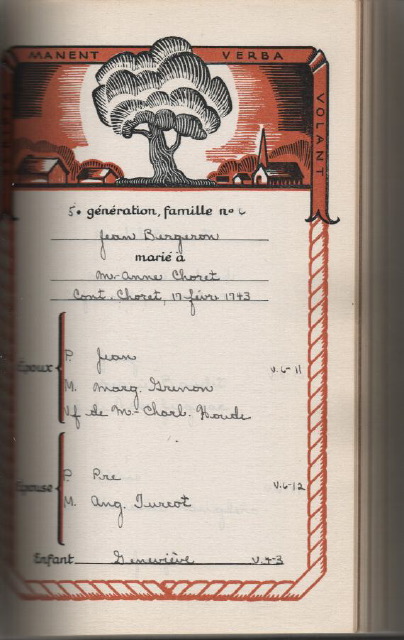 MANENT VERBA VOLANT
5e génération, famille no 6
Jean Bergeron
marié à
M-Anne Choret
Cont. Choret, 17 févr 1743
Époux
P. Jean V.6-11
M. Marg. Grenon
Vf de M-Charl. Houde
Épouse
P. Pre V.6-12
M. Ang. Turcot
Enfant Geneviève V.4-3